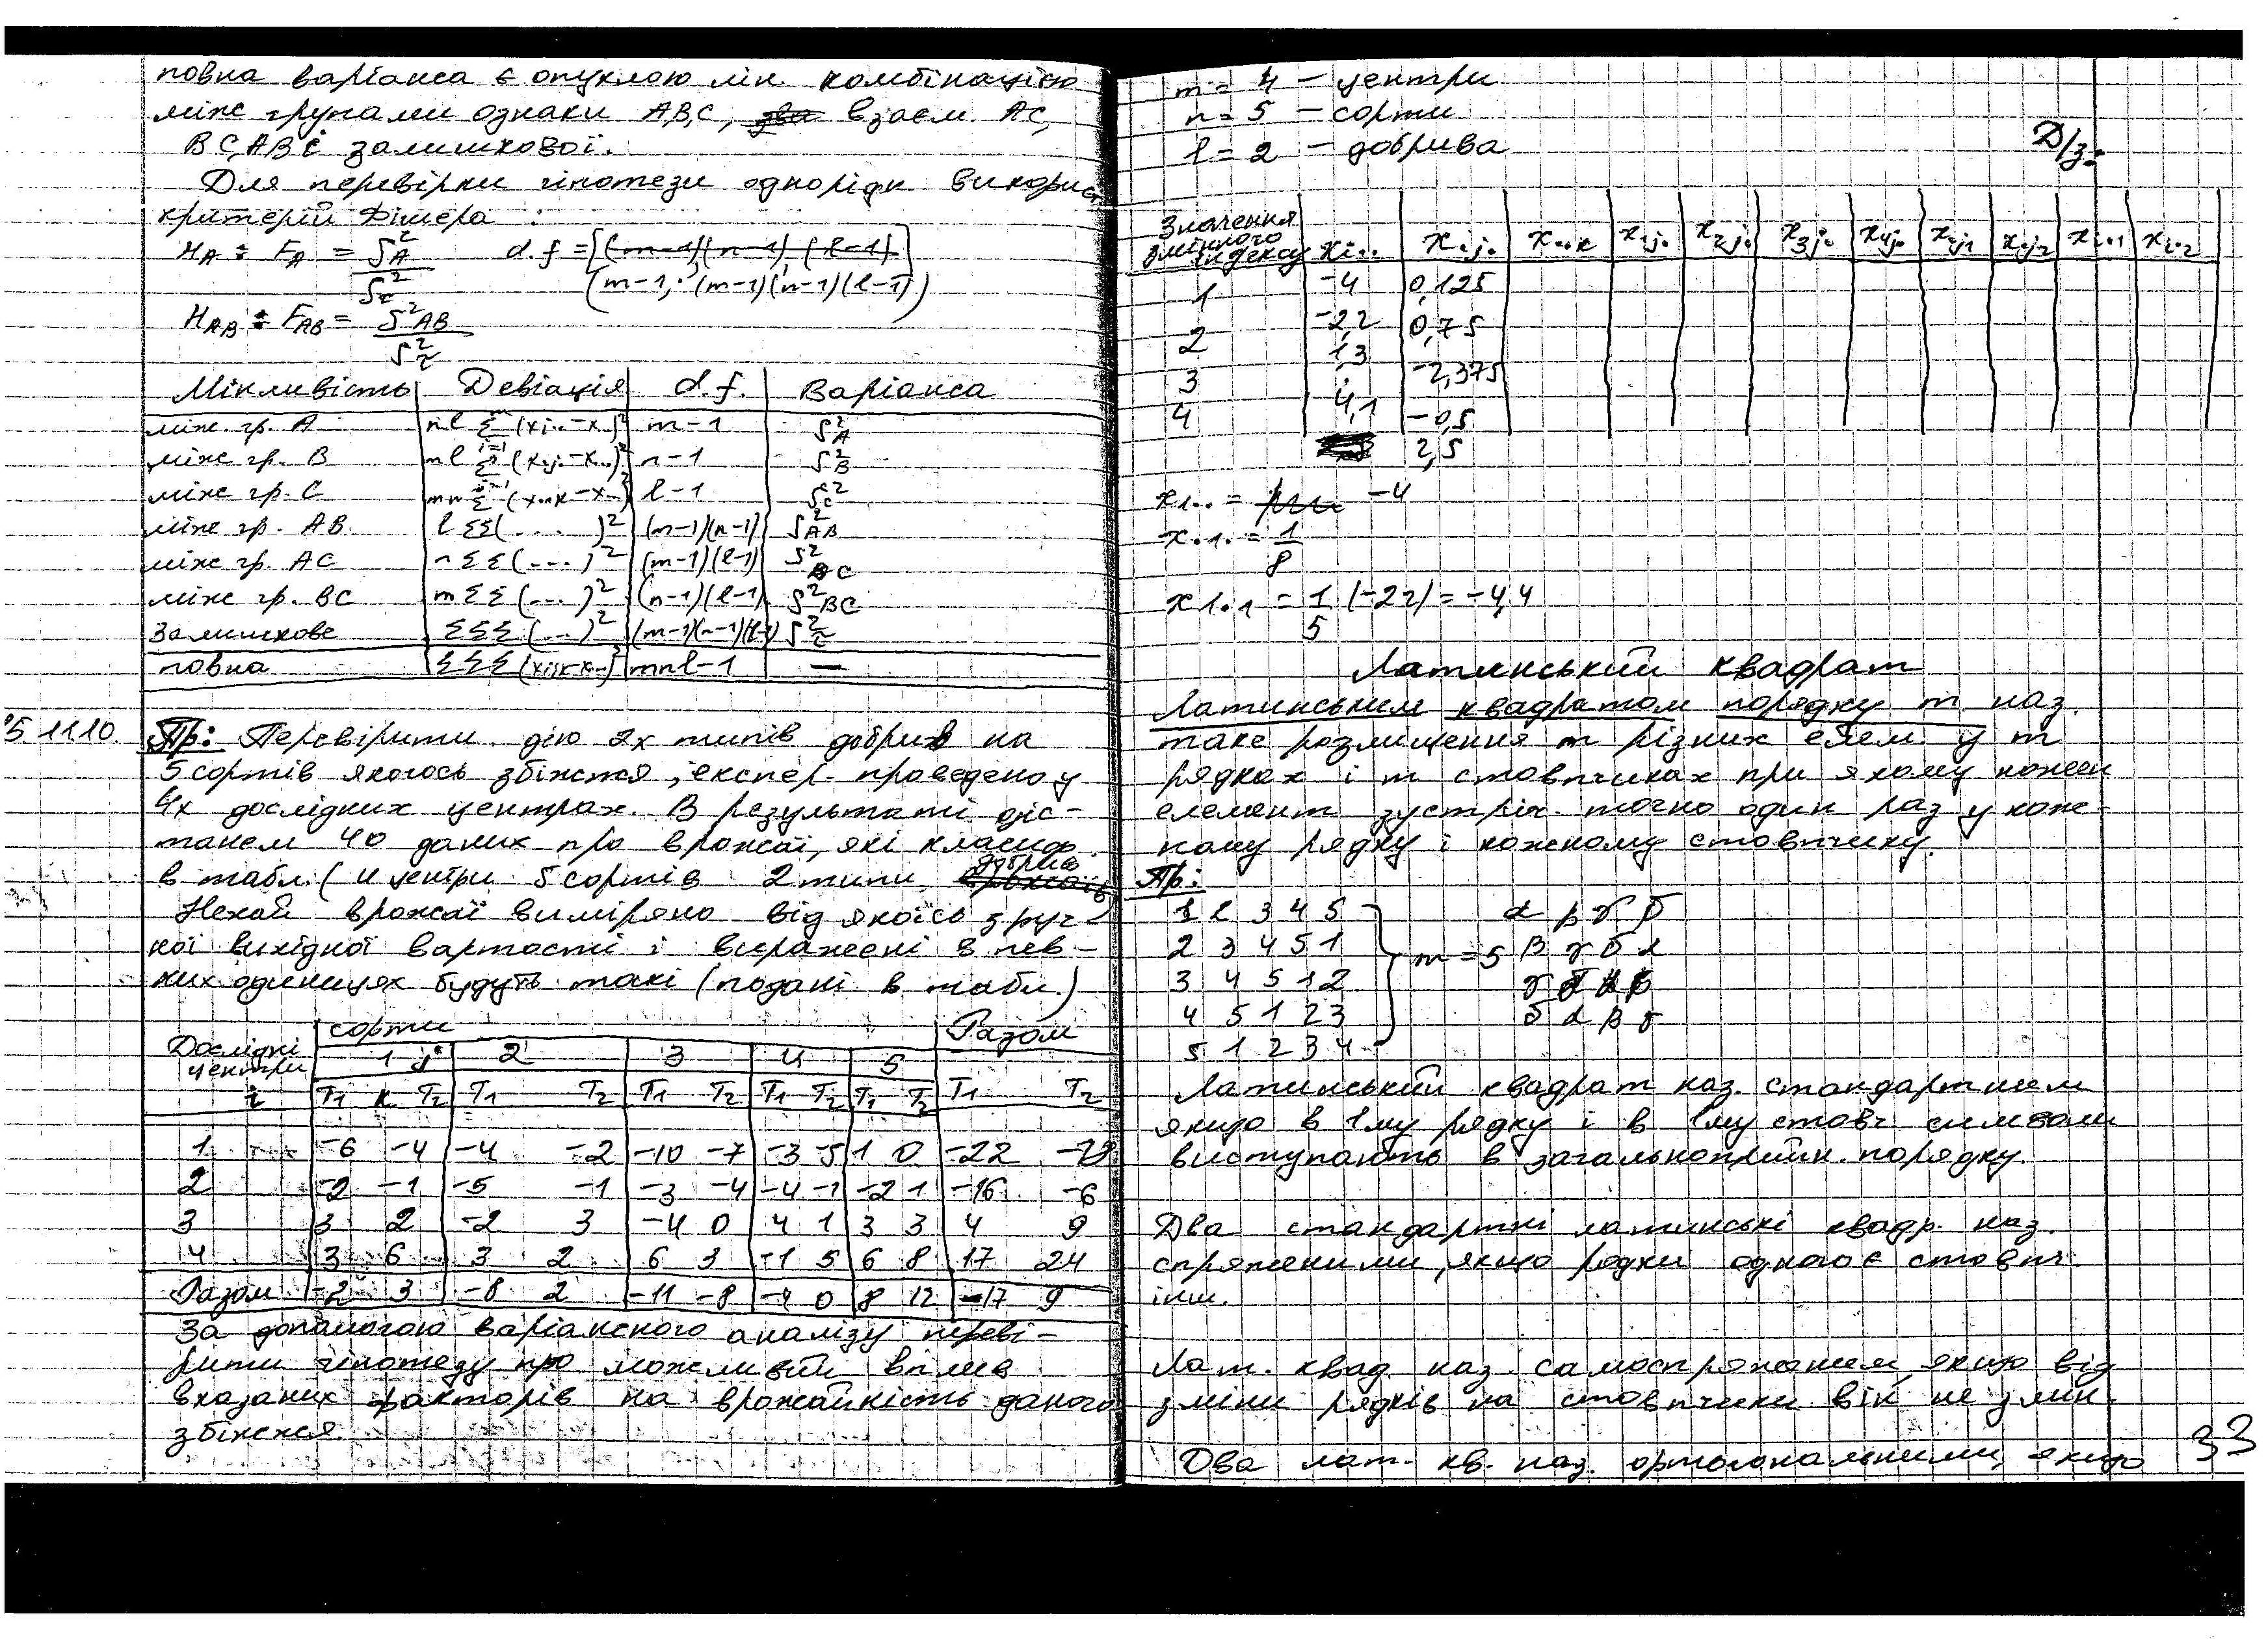 повна варіанса є опуклою лін. комбінацією
між групами ознаки А,В,С, взаєм. АС,
ВС,АВ і залишкової.
Для перевірки гіпотези однорідн викорис.
критерій Фішера :
H_A : F_A = S²_A / S²_z d.f = (m-1, (m-1)(n-1)(l-1))
H_AB : F_AB = S²_AB / S²_z
Мінливість Девіація d.f. Варіанса
між. гр. А nl Σ (xi..-x...)² m-1 S²_A
між гр. В ml Σ (x.j.-x...)² n-1 S²_B
між гр. С mn Σ (x..k-x...)² l-1 S²_C
між гр. АВ. l ΣΣ(....)² (m-1)(n-1) S²_AB
між гр. АС n ΣΣ(...)² (m-1)(l-1) S²_AC
між гр. ВС m ΣΣ(...)² (n-1)(l-1) S²_BC
Залишкове ΣΣΣ(...)² (m-1)(n-1)(l-1) S²_z
повна ΣΣΣ(xijk-x...)² mnl-1 —
15.11.10. Пр: Перевірити дію 2х типів добрив на
5 сортів якогось збіжжя, експер. проведено у
4х дослідних центрах. В результаті діс-
танем 40 даних про врожаї, які класиф.
в табл. (4 центри 5 сортів 2 типи добрив)
Нехай врожаї виміряно від якоїсь зруч-
ної вихідної вартості і виражені в пев-
них одиницях будуть такі (подані в табл.)
Дослідні центри i сорти Разом
1 j 2 3 4 5
T1 к T2 T1 T2 T1 T2 T1 T2 T1 T2 T1 T2
1 -6 -4 -4 -2 -10 -7 -3 -5 1 0 -22
2 -2 -1 -5 -1 -3 -4 -4 -1 -2 1 -16 -6
3 3 2 -2 3 -4 0 4 1 3 3 4 9
4 3 6 3 2 6 3 -1 5 6 8 17 24
Разом -2 3 -8 2 -11 -8 -4 0 8 12 -17 9
За допомогою варіансного аналізу переві-
рити гіпотезу про можливий вплив
вказаних факторів на врожайність даного
збіжжя.
m = 4 – центри
n = 5 – сорти
l = 2 – добрива
Д/з:
Значення змінного індексу xi.. x.j. x..k x1j. x2j. x3j. x4j. x.j1 x.j2 xi.1 xi.2
1 -4 0,125
2 -2,2 0,75
3 1,3 -2,375
4 4,1 -0,5
2,5
x1.. = -4
x.1. = 1/8
x1.1 = 1/5 (-22) = -4,4
Латинський квадрат
Латинським квадратом порядку m наз.
таке розміщення m різних елем. у m
рядках і m стовпчиках при якому кожен
елемент зустріч. точно один раз у кож-
ному рядку і кожному стовпчику.
Пр:
1 2 3 4 5 α β γ δ
2 3 4 5 1 m = 5 β γ δ α
3 4 5 1 2 γ δ α β
4 5 1 2 3 δ α β γ
5 1 2 3 4
Латинський квадрат наз. стандартним
якщо в 1му рядку і в 1му стовп. символи
виступають в загальноприйн. порядку.
Два стандартні латинські квадр. наз.
спряженими, якщо рядки одного є стовпч.
інш.
Лат. квад. наз. самоспряженим, якщо від
зміни рядків на стовпчики він не змін.
Два лат. кв. наз. ортогональними, якщо
33